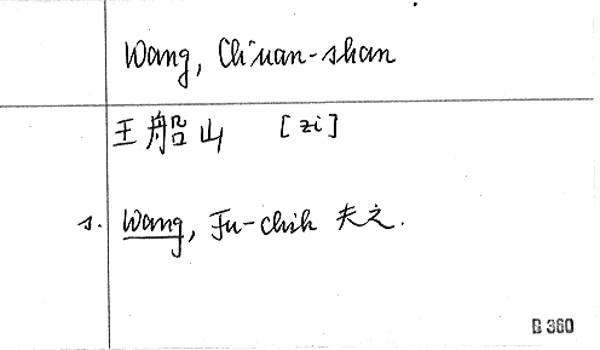 Wang, Ch'uan-shan
王船山 [zi]
s. Wang, Fu-chih 夫之.
B 360